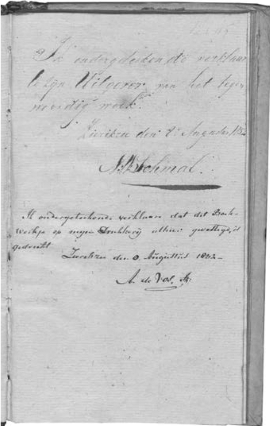 Ik ondergeteekende verklaar
te zijn Uitgever van het tegen
woordig werk.
Zierikzee den Augustus
Ik ondergeteekende verklaare dat dit Boek-
werkje op mijne Drukkerij alleen is
gedrukt.
Zierikzee den Augustus
A. de Vos